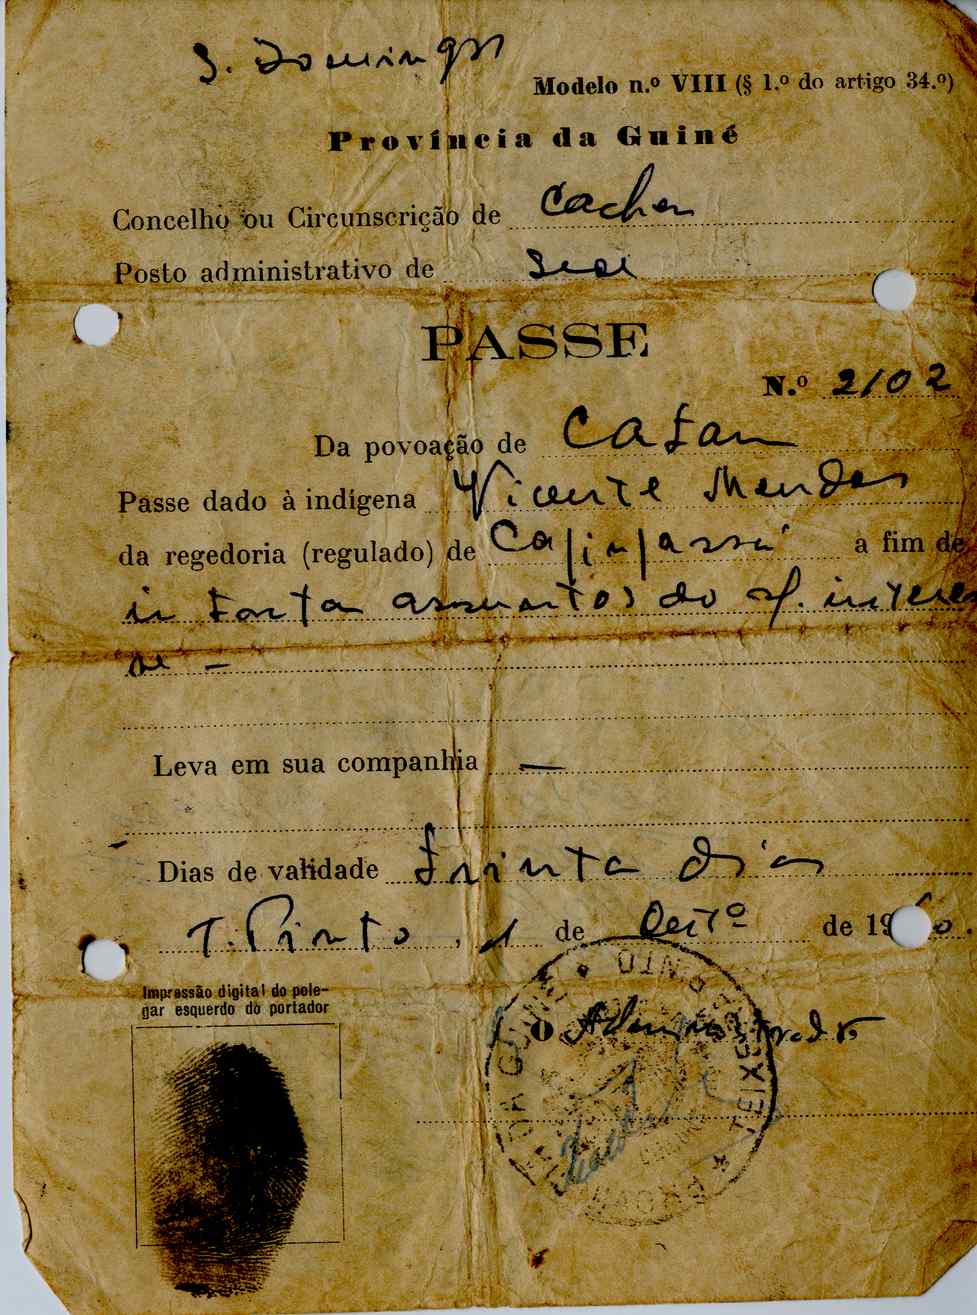 S. Domingos
Modelo n.º VIII (§ 1.º do artigo 34.º)
Província da Guiné
Concelho ou Circunscrição de Cacheu
Posto administrativo de Sede
PASSE
N.º 2102
Da povoação de Catam
Passe dado à indígena Vicente Mendes
da regedoria (regulado) de a fim de
ir tratar assuntos do s/. interes
se —
Leva em sua companhia —
Dias de validade trinta dias
T. Pinto, 1 de Outº de 19 0.
Impressão digital do pole-
gar esquerdo do portador
O Administrador
PROVÍNCIA DA GUINÉ * TEIXEIRA PINTO *